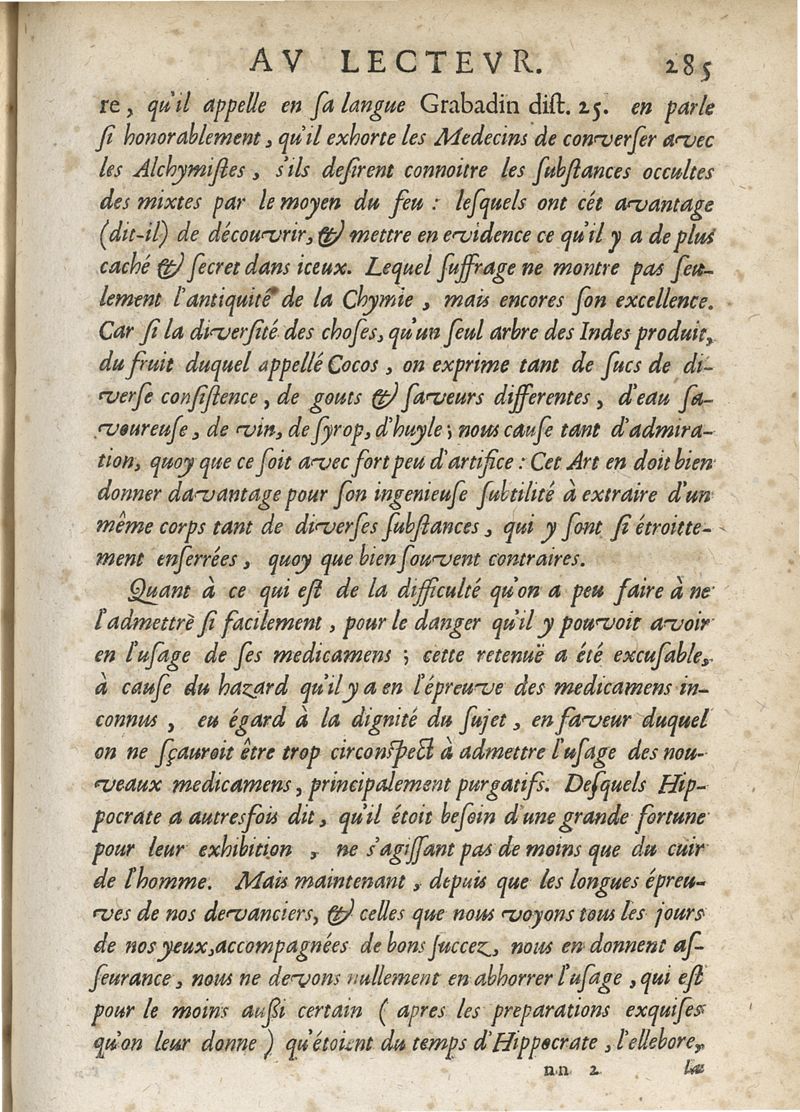 AV LECTEVR. 285
re, qu'il appelle en ſa langue Grabadin diſt. 25. en parle
ſi honorablement, qu'il exhorte les Medecins de converſer avec
les Alchymiſtes, s'ils deſirent connoitre les ſubſtances occultes
des mixtes par le moyen du feu : leſquels ont cét avantage
(dit-il) de découvrir, & mettre en evidence ce qu'il y a de plus
caché & ſecret dans iceux. Lequel ſuffrage ne montre pas ſeu-
lement l'antiquité de la Chymie, mais encores ſon excellence.
Car ſi la diverſité des choſes, qu'un ſeul arbre des Indes produit,
du fruit duquel appellé Cocos, on exprime tant de ſucs de di-
verſe conſiſtence, de gouts & ſaveurs differentes, d'eau ſa-
voureuſe, de vin, de ſyrop, d'huyle ; nous cauſe tant d'admira-
tion, quoy que ce ſoit avec fort peu d'artifice : Cet Art en doit bien
donner davantage pour ſon ingenieuſe ſubtilité à extraire d'un
même corps tant de diverſes ſubſtances, qui y ſont ſi étroitte-
ment enſerrées, quoy que bien ſouvent contraires.
Quant à ce qui eſt de la difficulté qu'on a peu faire à ne
l'admettrè ſi facilement, pour le danger qu'il y pouvoit avoir
en l'uſage de ſes medicamens ; cette retenuë a été excuſable,
à cauſe du hazard qu'il y a en l'épreuve des medicamens in-
connus, eu égard à la dignité du ſujet, en faveur duquel
on ne ſçauroit être trop circonſpect à admettre l'uſage des nou-
veaux medicamens, principalement purgatifs. Deſquels Hip-
pocrate a autresfois dit, qu'il étoit beſoin d'une grande fortune
pour leur exhibition, ne s'agiſſant pas de moins que du cuir
de l'homme. Mais maintenant, depuis que les longues épreu-
ves de nos devanciers, & celles que nous voyons tous les jours
de nos yeux, accompagnées de bons ſuccez, nous en donnent aſ-
ſeurance, nous ne devons nullement en abhorrer l'uſage, qui eſt
pour le moins auſſi certain ( apres les preparations exquiſes
qu'on leur donne ) qu'étoient du temps d'Hippocrate, l'ellebore,
nn 2 la